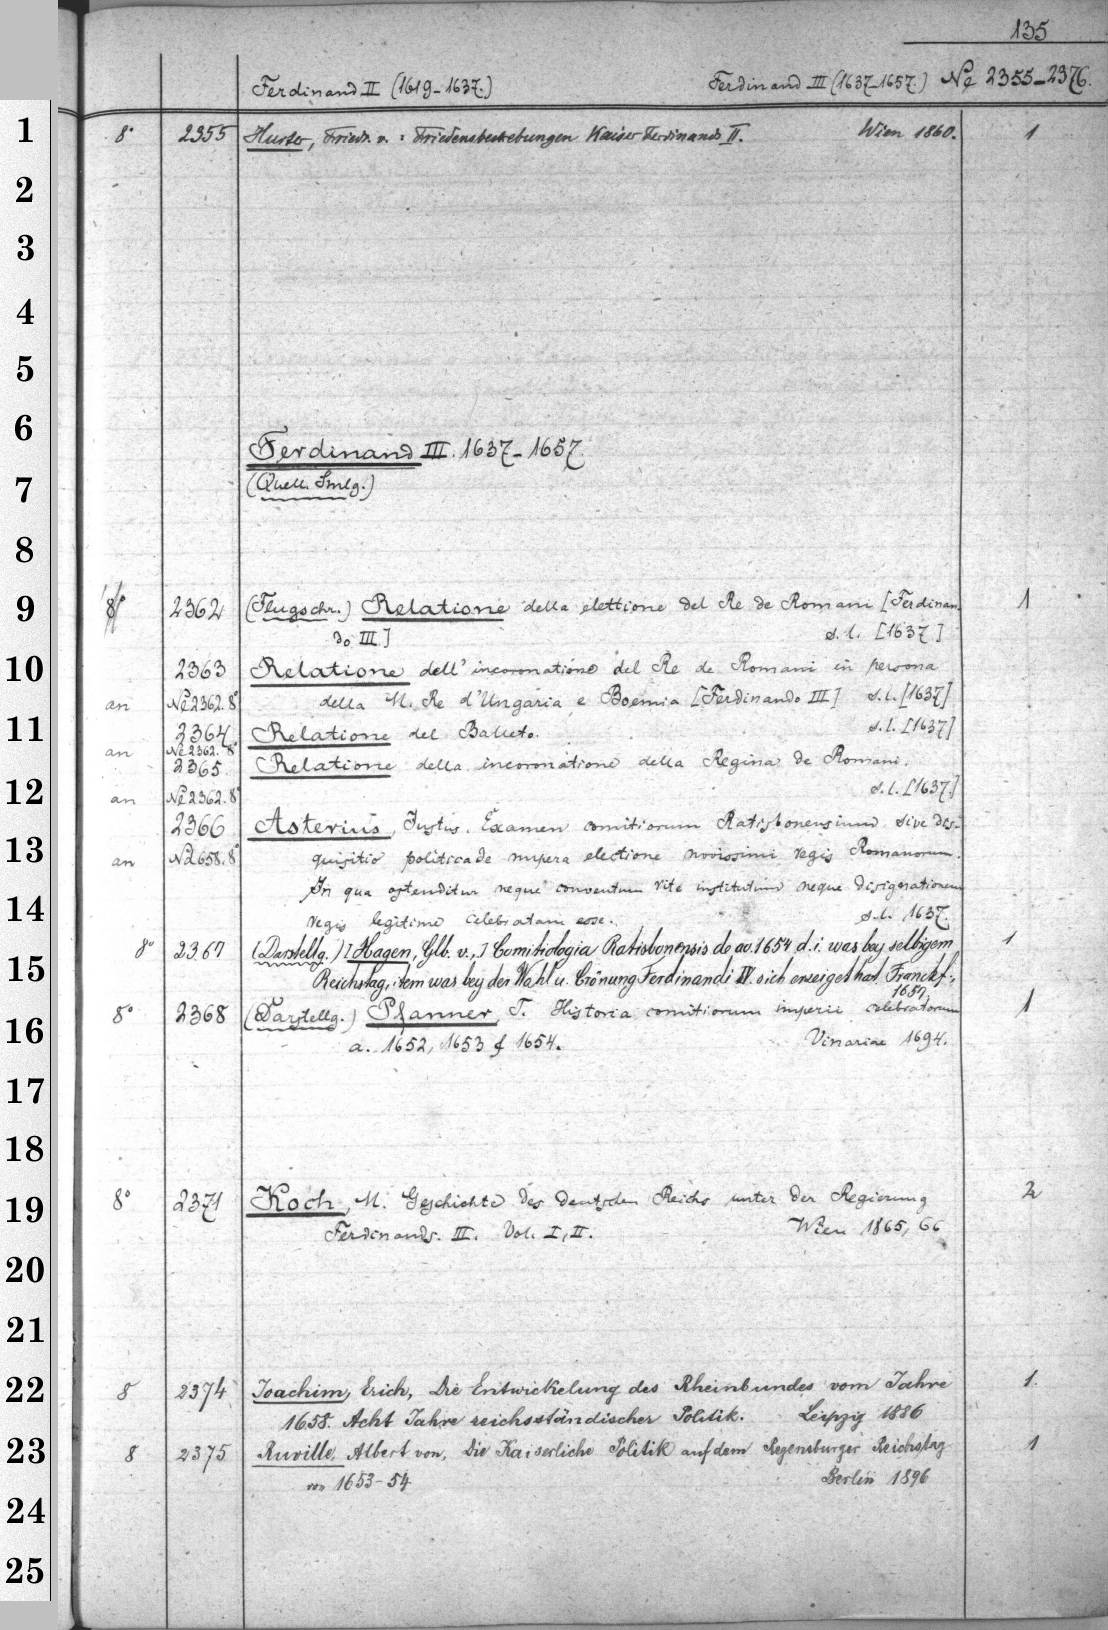 135
Ferdinand II (1619-1637.) Ferdinand III (1637-1657.) No 2355-2376.
1 8° 2355 Hurter, Friedr. v.: Friedensbestrebungen Kaiser Ferdinands II. Wien 1860. 1
2
3
4
5
6
Ferdinand III. 1637-1657.
7 (Quell. Smlg.)
8
9 8° 2362 (Flugschr.) Relatione della elettione del Re de Romani [Ferdinan- 1
do III] s. l. [1637]
10 2363 Relatione dell' incoronatione del Re de Romani in persona
an No 2362. 8° della M. Re d'Ungaria e Boemia [Ferdinando III] s. l. [1637]
11 2364 Relatione del Balleto. s. l. [1637]
an No 2362. 8°
2365 Relatione della incoronatione della Regina de Romani.
12 an No 2362. 8° s. l. [1637.]
2366 Asterius, Justus. Examen comitiorum Ratisbonensium sive dis-
13 an No 2658. 8° quisitio politica de nupera electione novissimi regis Romanorum.
In qua ostenditur neque conventum rite institutum neque designationem
14 regis legitime celebratam esse. s. l. 1637.
8° 2367 (Darstellg.) [Hagen, Glb. v.,] Comitiologia Ratisbonensis de ao. 1654 d. i. was bey selbigem 1
15 Reichstag, item was bey der Wahl u. Crönung Ferdinandi IV. sich erzeiget hat. Franckf.,
1654.
16 8° 2368 (Darstellg.) Pfanner, T. Historia comitiorum imperii celebratorum 1
a. 1652, 1653 & 1654. Vinariae 1694.
17
18
19 8° 2371 Koch, M. Geschichte des deutschen Reichs unter der Regierung 2
Ferdinands. III. Vol. I, II. Wien 1865, 66
20
21
22 8 2374 Joachim, Erich, Die Entwickelung des Rheinbundes vom Jahre 1.
1658. Acht Jahre reichsständischer Politik. Leipzig 1886
23 8 2375 Ruville, Albert von, Die Kaiserliche Politik auf dem Regensburger Reichstag 1
von 1653-54 Berlin 1896
24
25